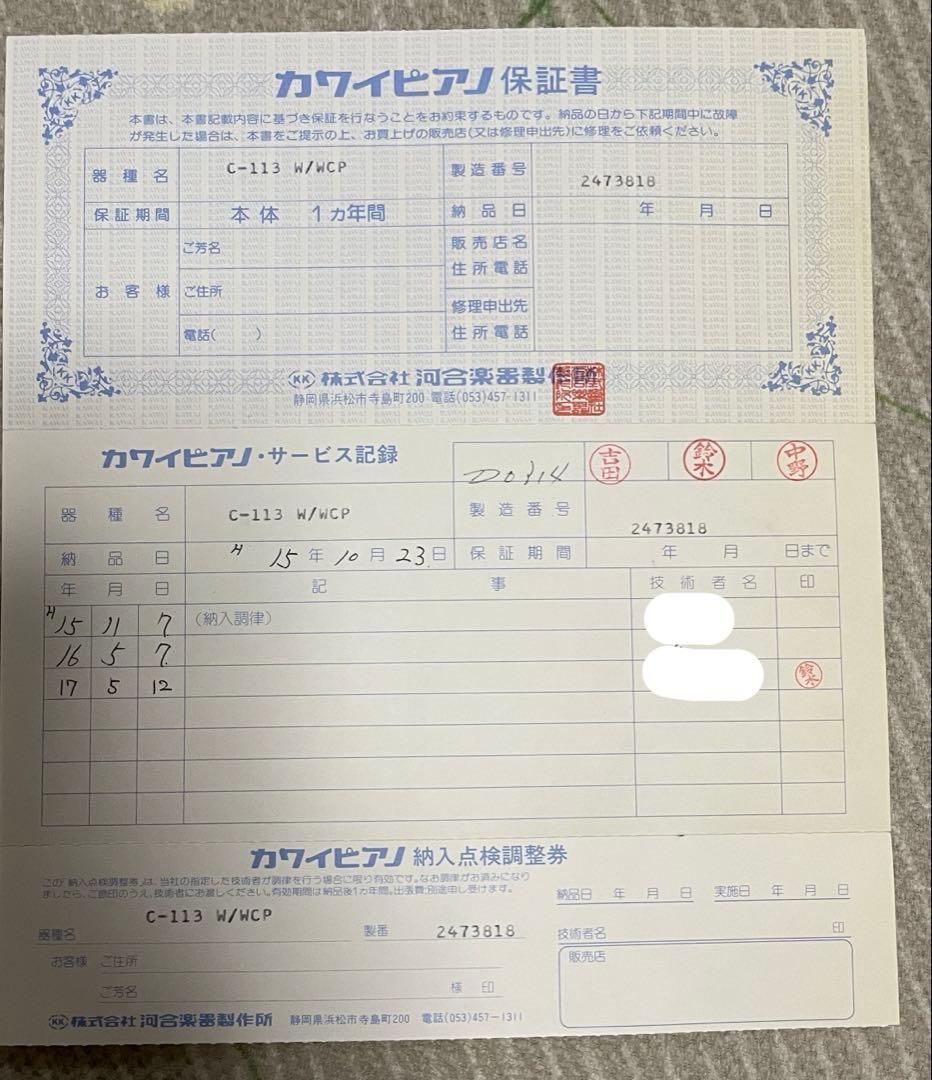 カワイピアノ 保証書
本書は、本書記載内容に基づき保証を行なうことをお約束するものです。納品の日から下記期間中に故障
が発生した場合は、本書をご提示の上、お買上げの販売店(又は修理申出先)に修理をご依頼ください。
器種名 C-113 W/WCP 製造番号 2473818
保証期間 本体 1カ年間 納品日 年 月 日
お客様 ご芳名 販売店名
住所電話
ご住所
修理申出先
電話( ) 住所電話
KK 株式会社 河合楽器製作所
静岡県浜松市寺島町200 電話(053)457-1311
カワイピアノ・サービス記録 吉田 鈴木 中野
器種名 C-113 W/WCP 製造番号 2473818
納品日 H 15年10月23日 保証期間 年 月 日まで
年 月 日 記事 技術者名 印
H15 11 7 (納入調律)
16 5 7
17 5 12 鈴木
カワイピアノ 納入点検調整券
この「納入点検調整券」は、当社の指定した技術者が調律を行う場合に限り有効です。なお調律がお済みになり
ましたら、ご認印のうえ、技術者にお渡しください。有効期間は納品後1カ年間。出張費は別途申し受けます。
納品日 年 月 日 実施日 年 月 日
器種名 C-113 W/WCP 製番 2473818
技術者名 印
お客様 ご住所
販売店
ご芳名 様 印
KK 株式会社 河合楽器製作所 静岡県浜松市寺島町200 電話(053)457-1311